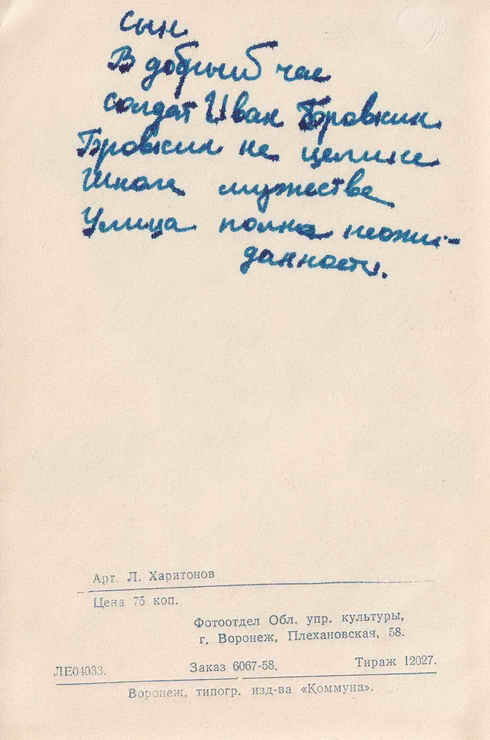 сын
В добрый час
солдат Иван Бровкин
Бровкин не целине
Школа мужества
Улица полна неожи-
данностей.
Арт. Л. Харитонов
Цена 75 коп.
Фотоотдел Обл. упр. культуры,
г. Воронеж, Плехановская, 58.
ЛЕ04033. Заказ 6067-58. Тираж 12027.
Воронеж, типогр. изд-ва «Коммуна».